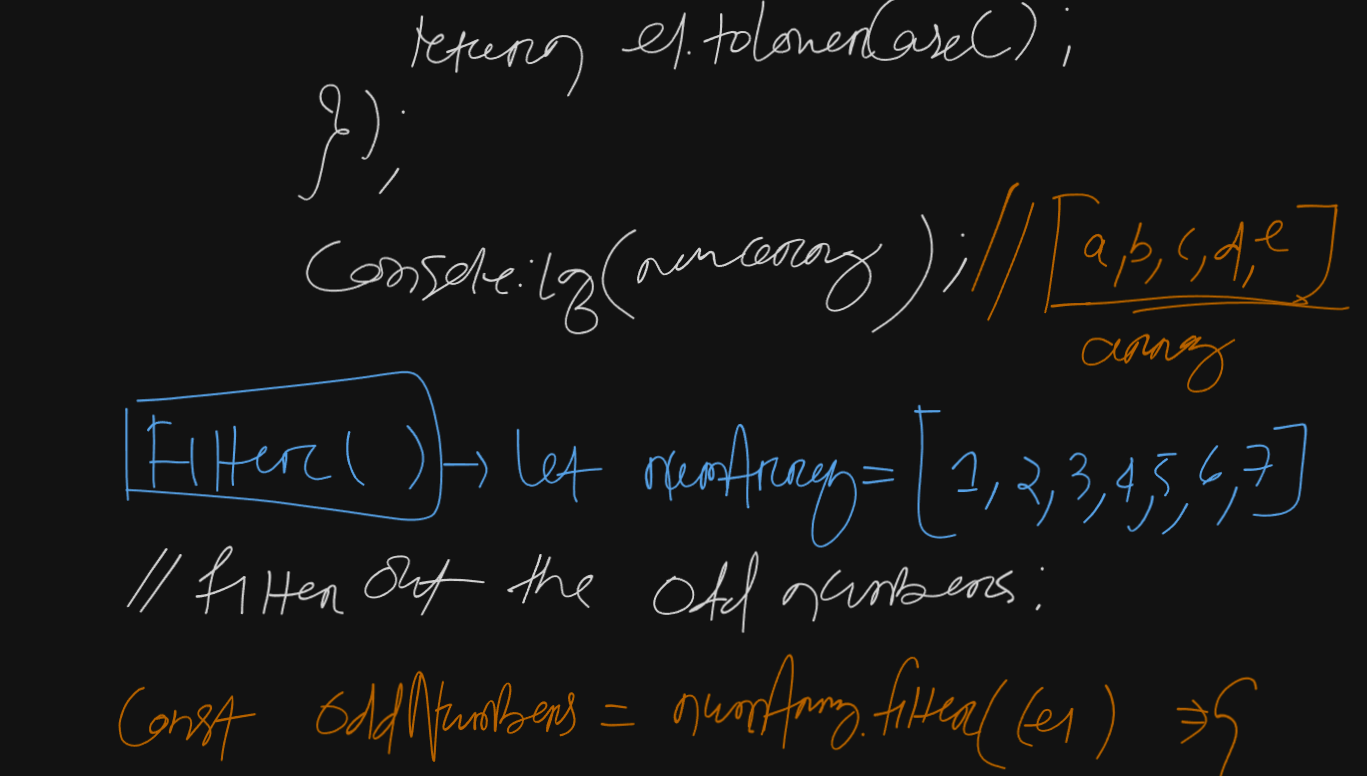 return el.toLowerCase();
});
console.log(numarray); // [a,b,c,d,e]
array
Filter() → let numArray = [1,2,3,4,5,6,7]
// filter out the odd numbers:
Const oddNumbers = numArray.filter((el) => {